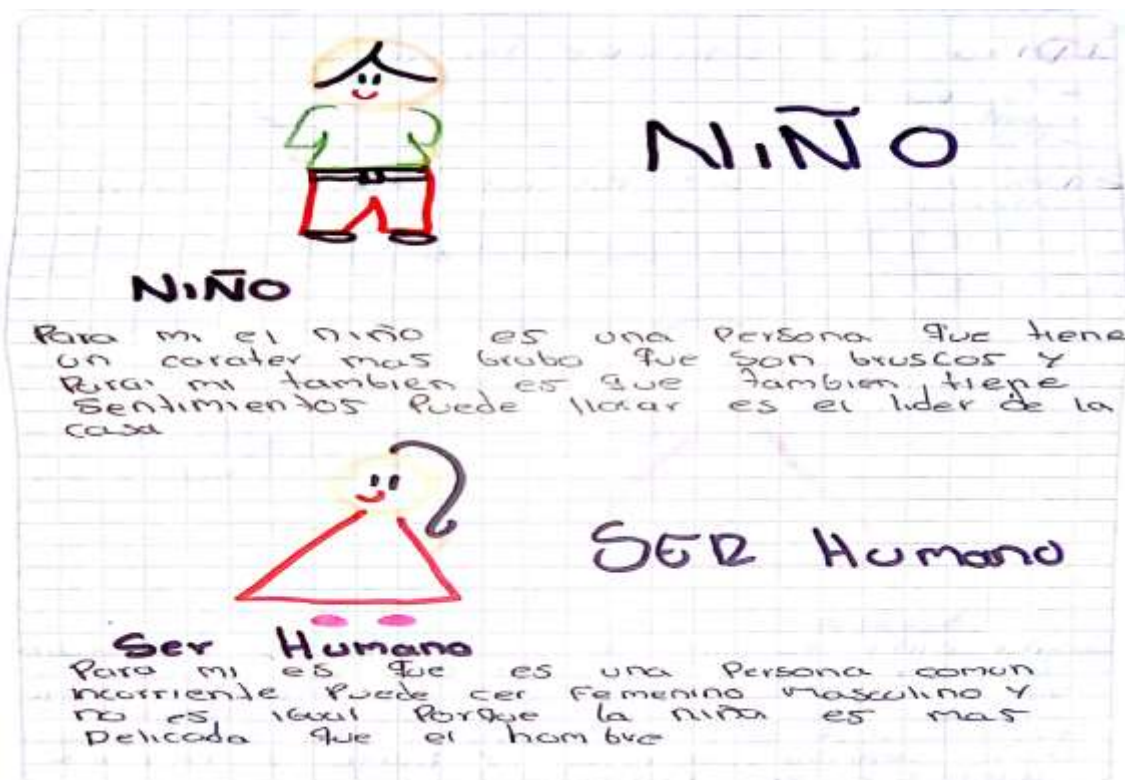 NIÑO
NIÑO
Para mi el niño es una Persona que tiene
un carater mas brubo que son bruscos y
Para mi tambien es que tambien tiene
sentimientos Puede llorar es el lider de la
casa
SER Humano
Ser Humano
Para mi es que es una Persona comun
incorriente Puede cer Femenino Masculino y
no es igual Porque la niña es mas
Delicada que el hombre